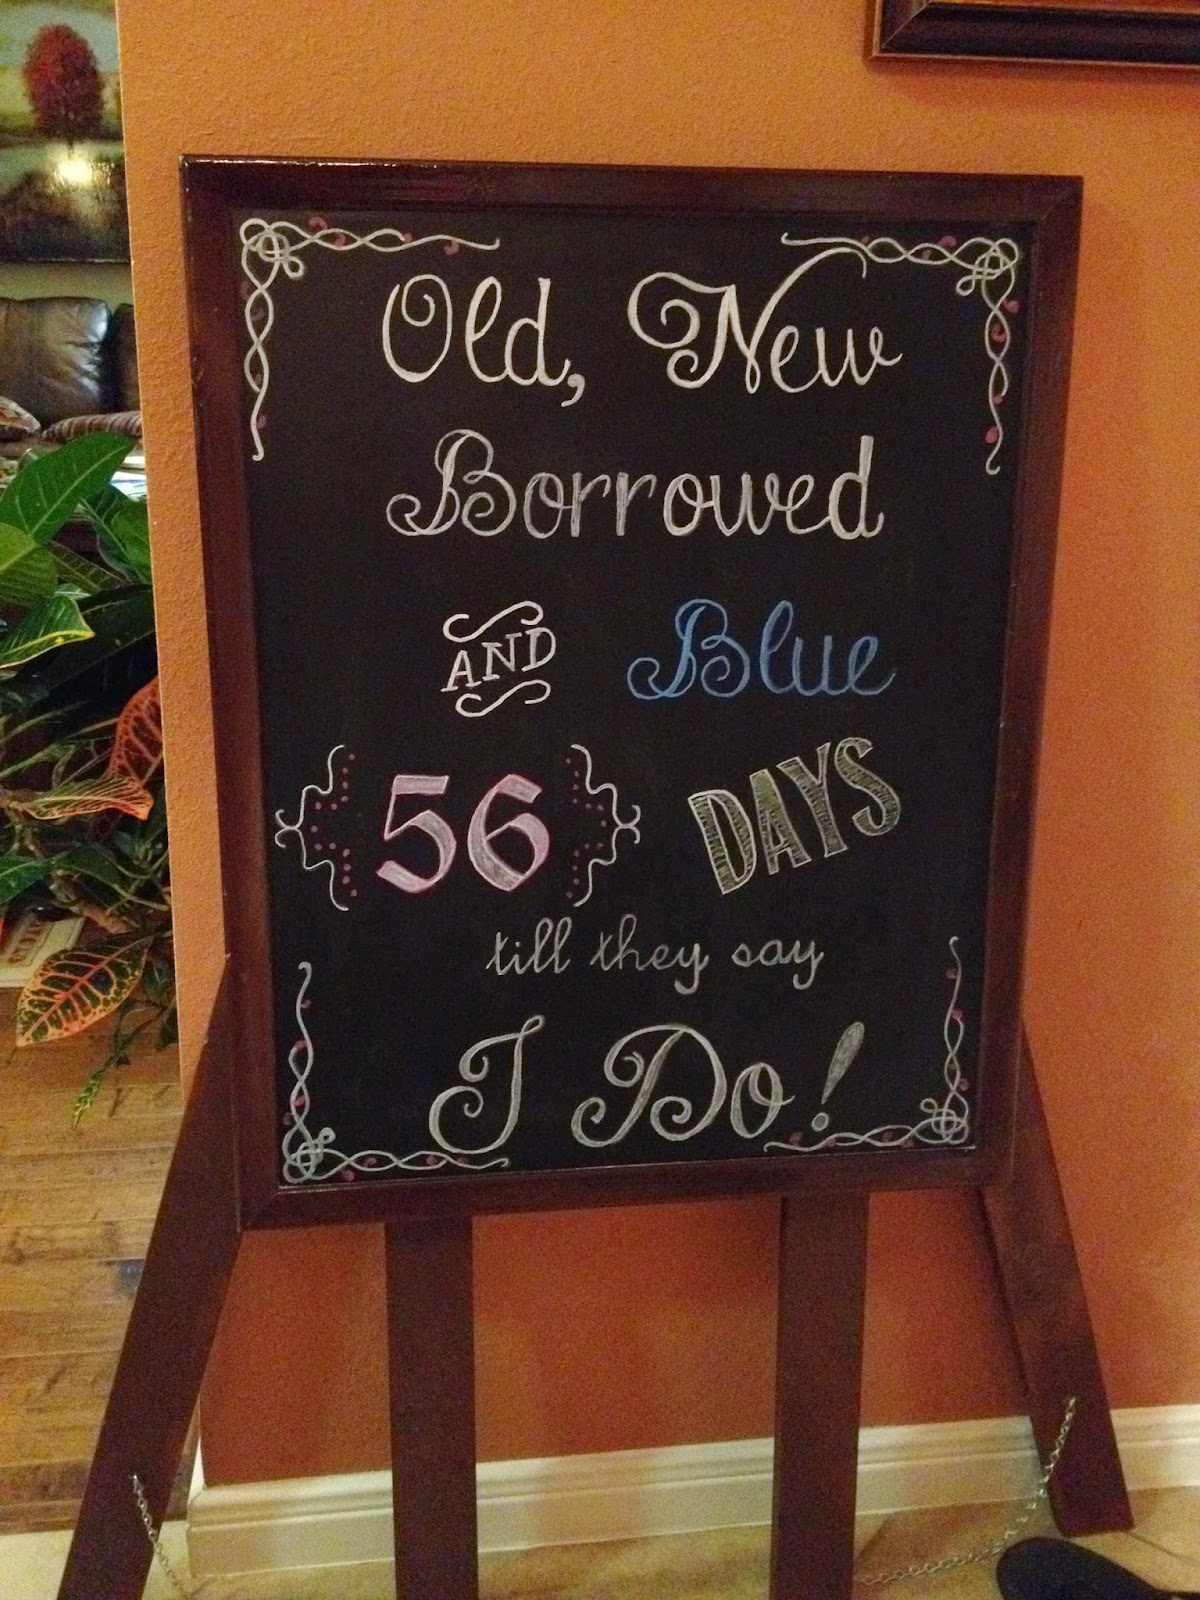 Old, New
Borrowed
AND Blue
56 DAYS
till they say
I Do!